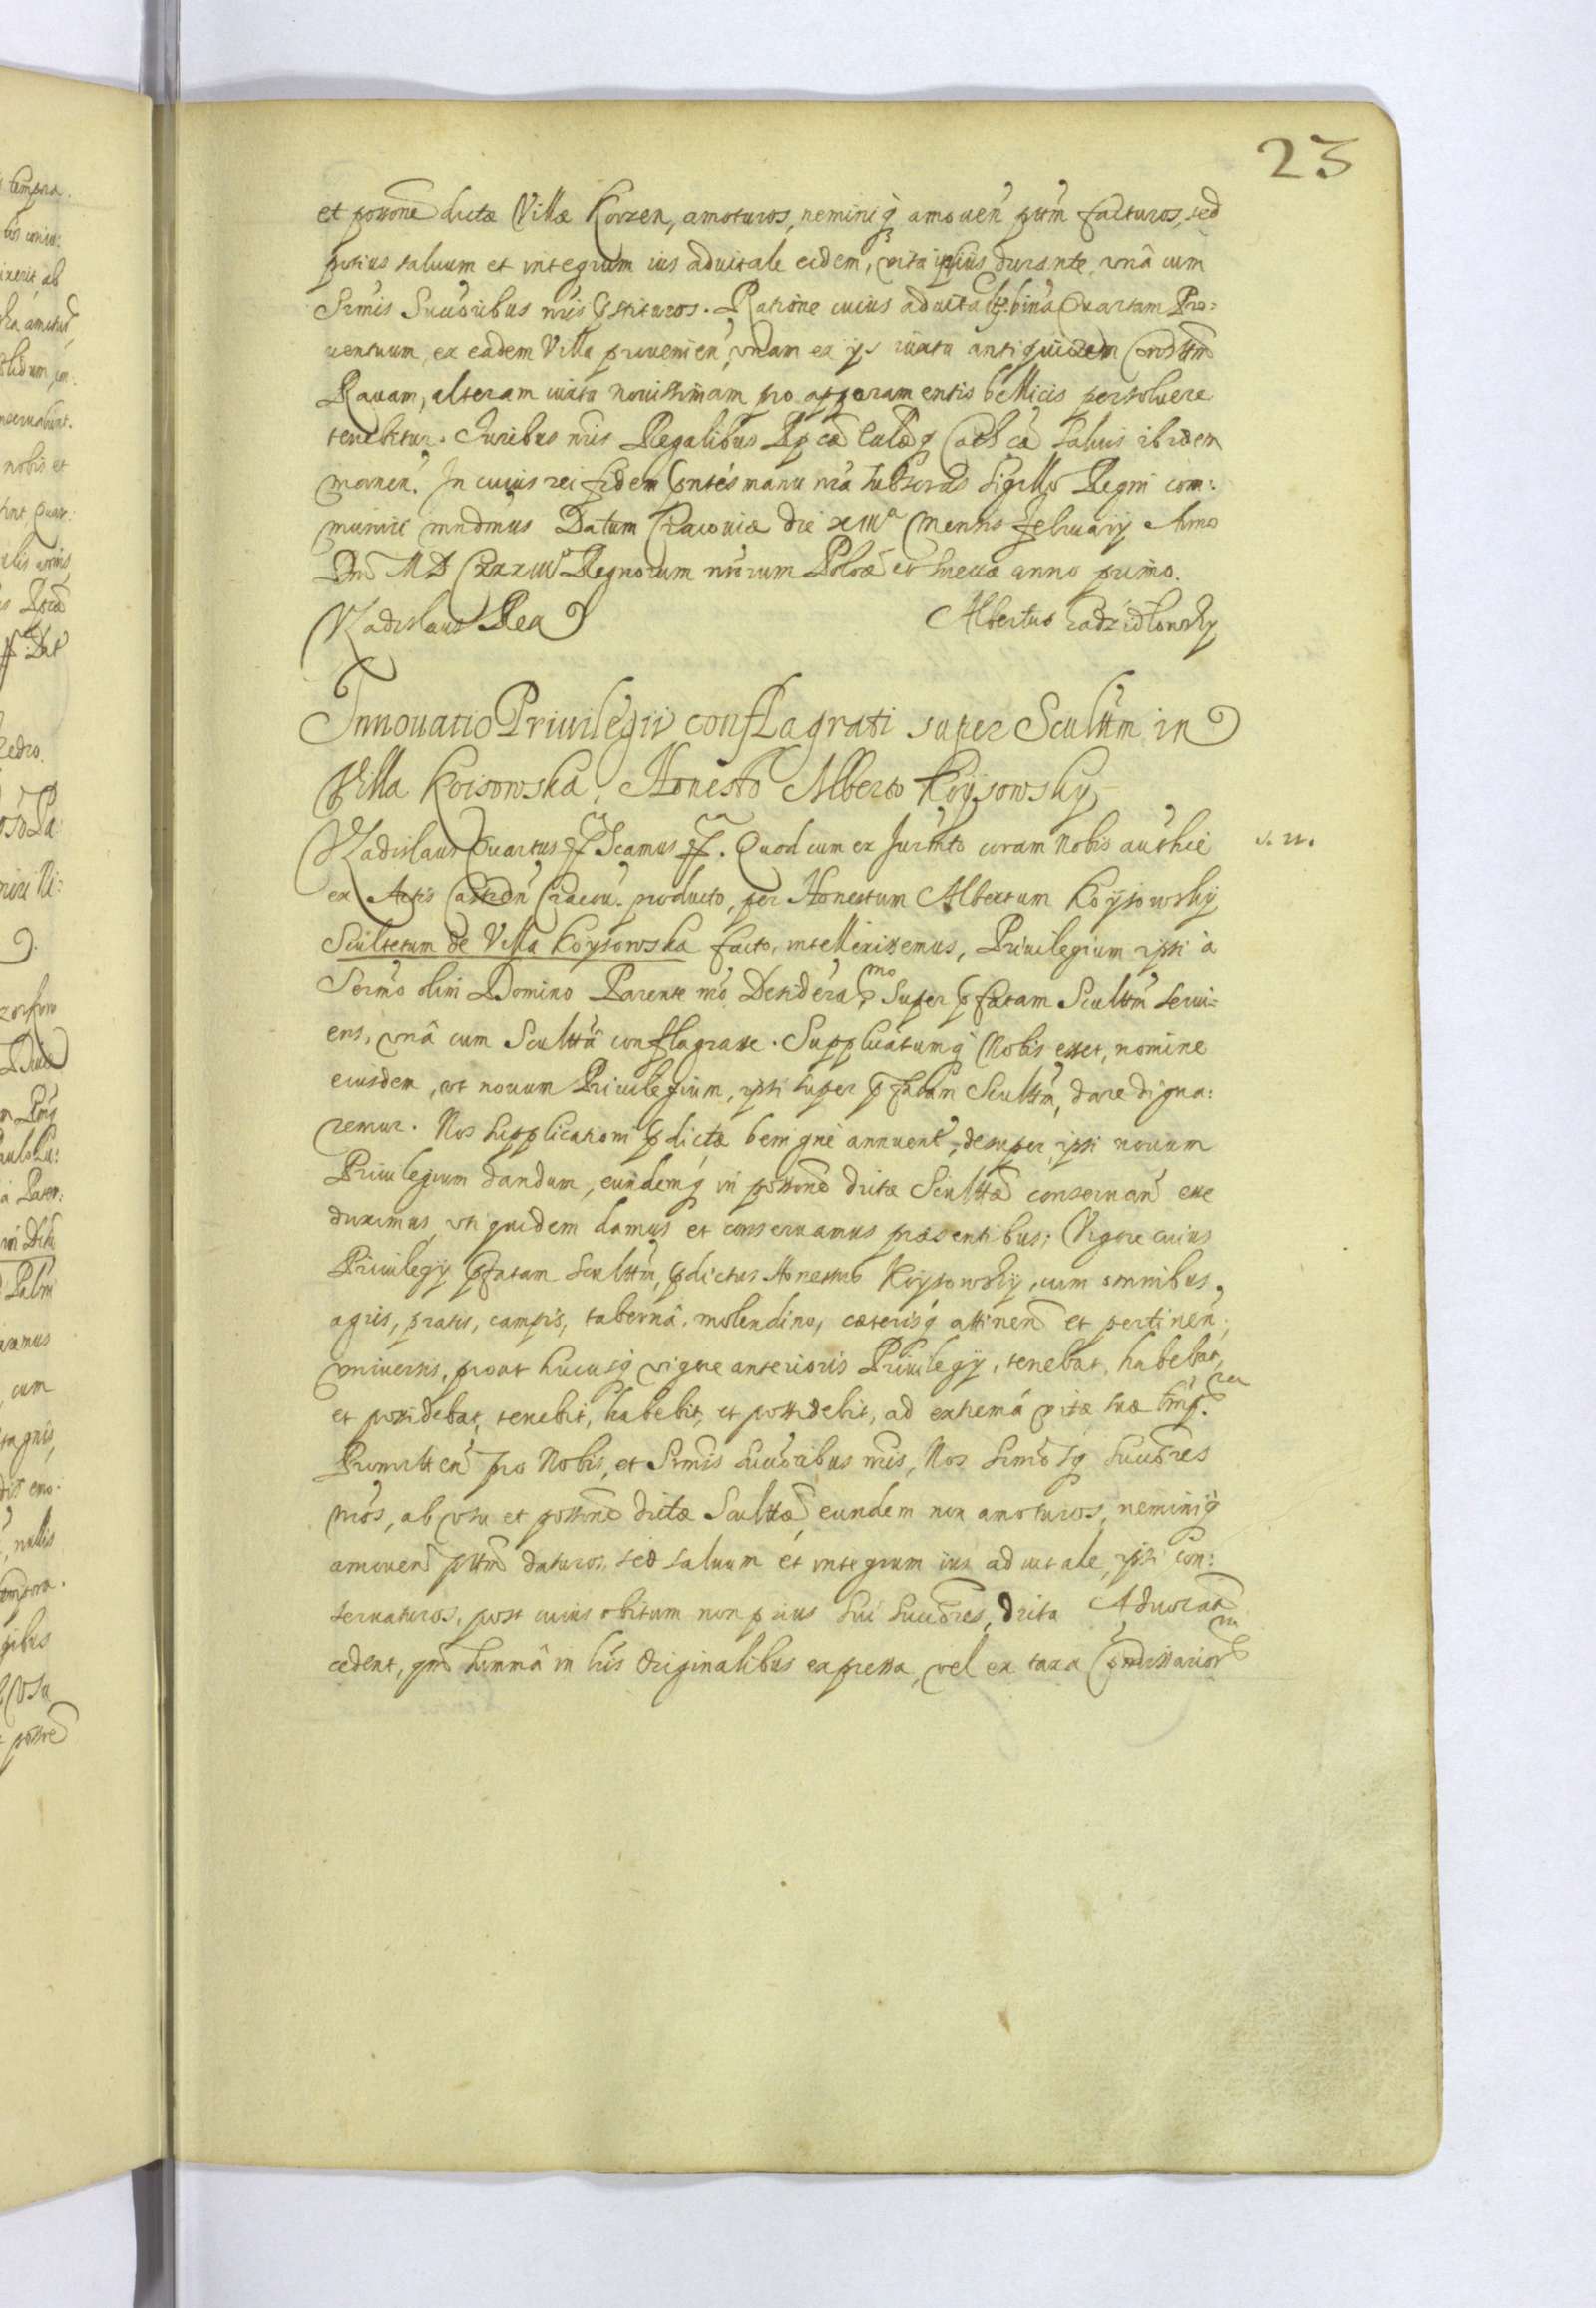 23
et possone dictæ Villæ Korzen, amoturos, neminiq amouen ptm facturos, sed
potius saluum et integrum ius aduitale eidem, vita ipsius durante, vnâ cum
Srmis Succoribus nris pstituros. Ratione cuius aduita bina Quartam Pro:
uentuum, ex eadem Villa prouenien, vnam ex ijs iuxta antiquiorem Constm
Rauam, alteram iuxta nouissimam pro apparamentis bellicis persoluere
tenebitur. Iuribus nris Regalibus Rpcæ Ecclæq Cathcæ saluis ibidem
manen. In cuius rei fidem pntes manu nra subscras Sigillo Regni com:
muniri mndmus Datum Cracouiæ die xiii Mensis February Anno
Dni MDCxxxiii Regnorum nrorum Poloæ et Sueciæ anno primo.
Vladislaus Rex Albertus Kadzidlowsky
Innouatio Priuilegii conflagrati super Scultm in
Villa Koisowska, Honesto Alberto Koysowsky
Vladislaus Quartus Scamus. Quod cum ex Jurmto coram Nobis authce v. n.
ex Actis Castren Cracou. producto, per Honestum Albertum Koysowsky
Scultetum de Villa Koysowska facto, intellexissemus, Priuilegium ipsi à
Sermo olim Domino Parente nro Desideramo super pfatam Scultm serui=
ens, vnâ cum Sculttâ conflagrasse. Supplicatumq Nobis esset, nomine
eiusdem, vt nouum Priuilegium, ipsi super pfatam Scultm, dare digna:
remur. Nos supplicationi pdictæ benigne annuen, desuper ipsi nouum
Priuilegium dandum, eundemq in possone dictæ Sculttæ conseruan esse
duximus, vti quidem damus et conseruamus præsentibus; Vigore cuius
Priuilegy pfatam Scultm, pdictus Honestus Koysowsky, cum omnibus
agris, pratis, campis, tabernâ, molendino, cæterisq attinen et pertinen,
vniuersis, prout hucusq vigore anterioris Priuilegy, tenebat, habebat,
et possidebat, tenebit, habebit, et possidebit, ad extrema vitæ suæ tmpra.
Promitten pro Nobis, et Srmis Succoribus nris, Nos Srmosq Succores
nros, ab vsu et possone dictæ Sculttæ, eundem non amoturos, neminiq
amouen ptm daturos, sed saluum et integrum ius aduitale, ipsi con:
seruaturos, post cuius obitum non prius sui Succores, dicta Aduocat
cedent, qm summâ in lris Originalibus expressa, vel ex taxa Cmmissariorum